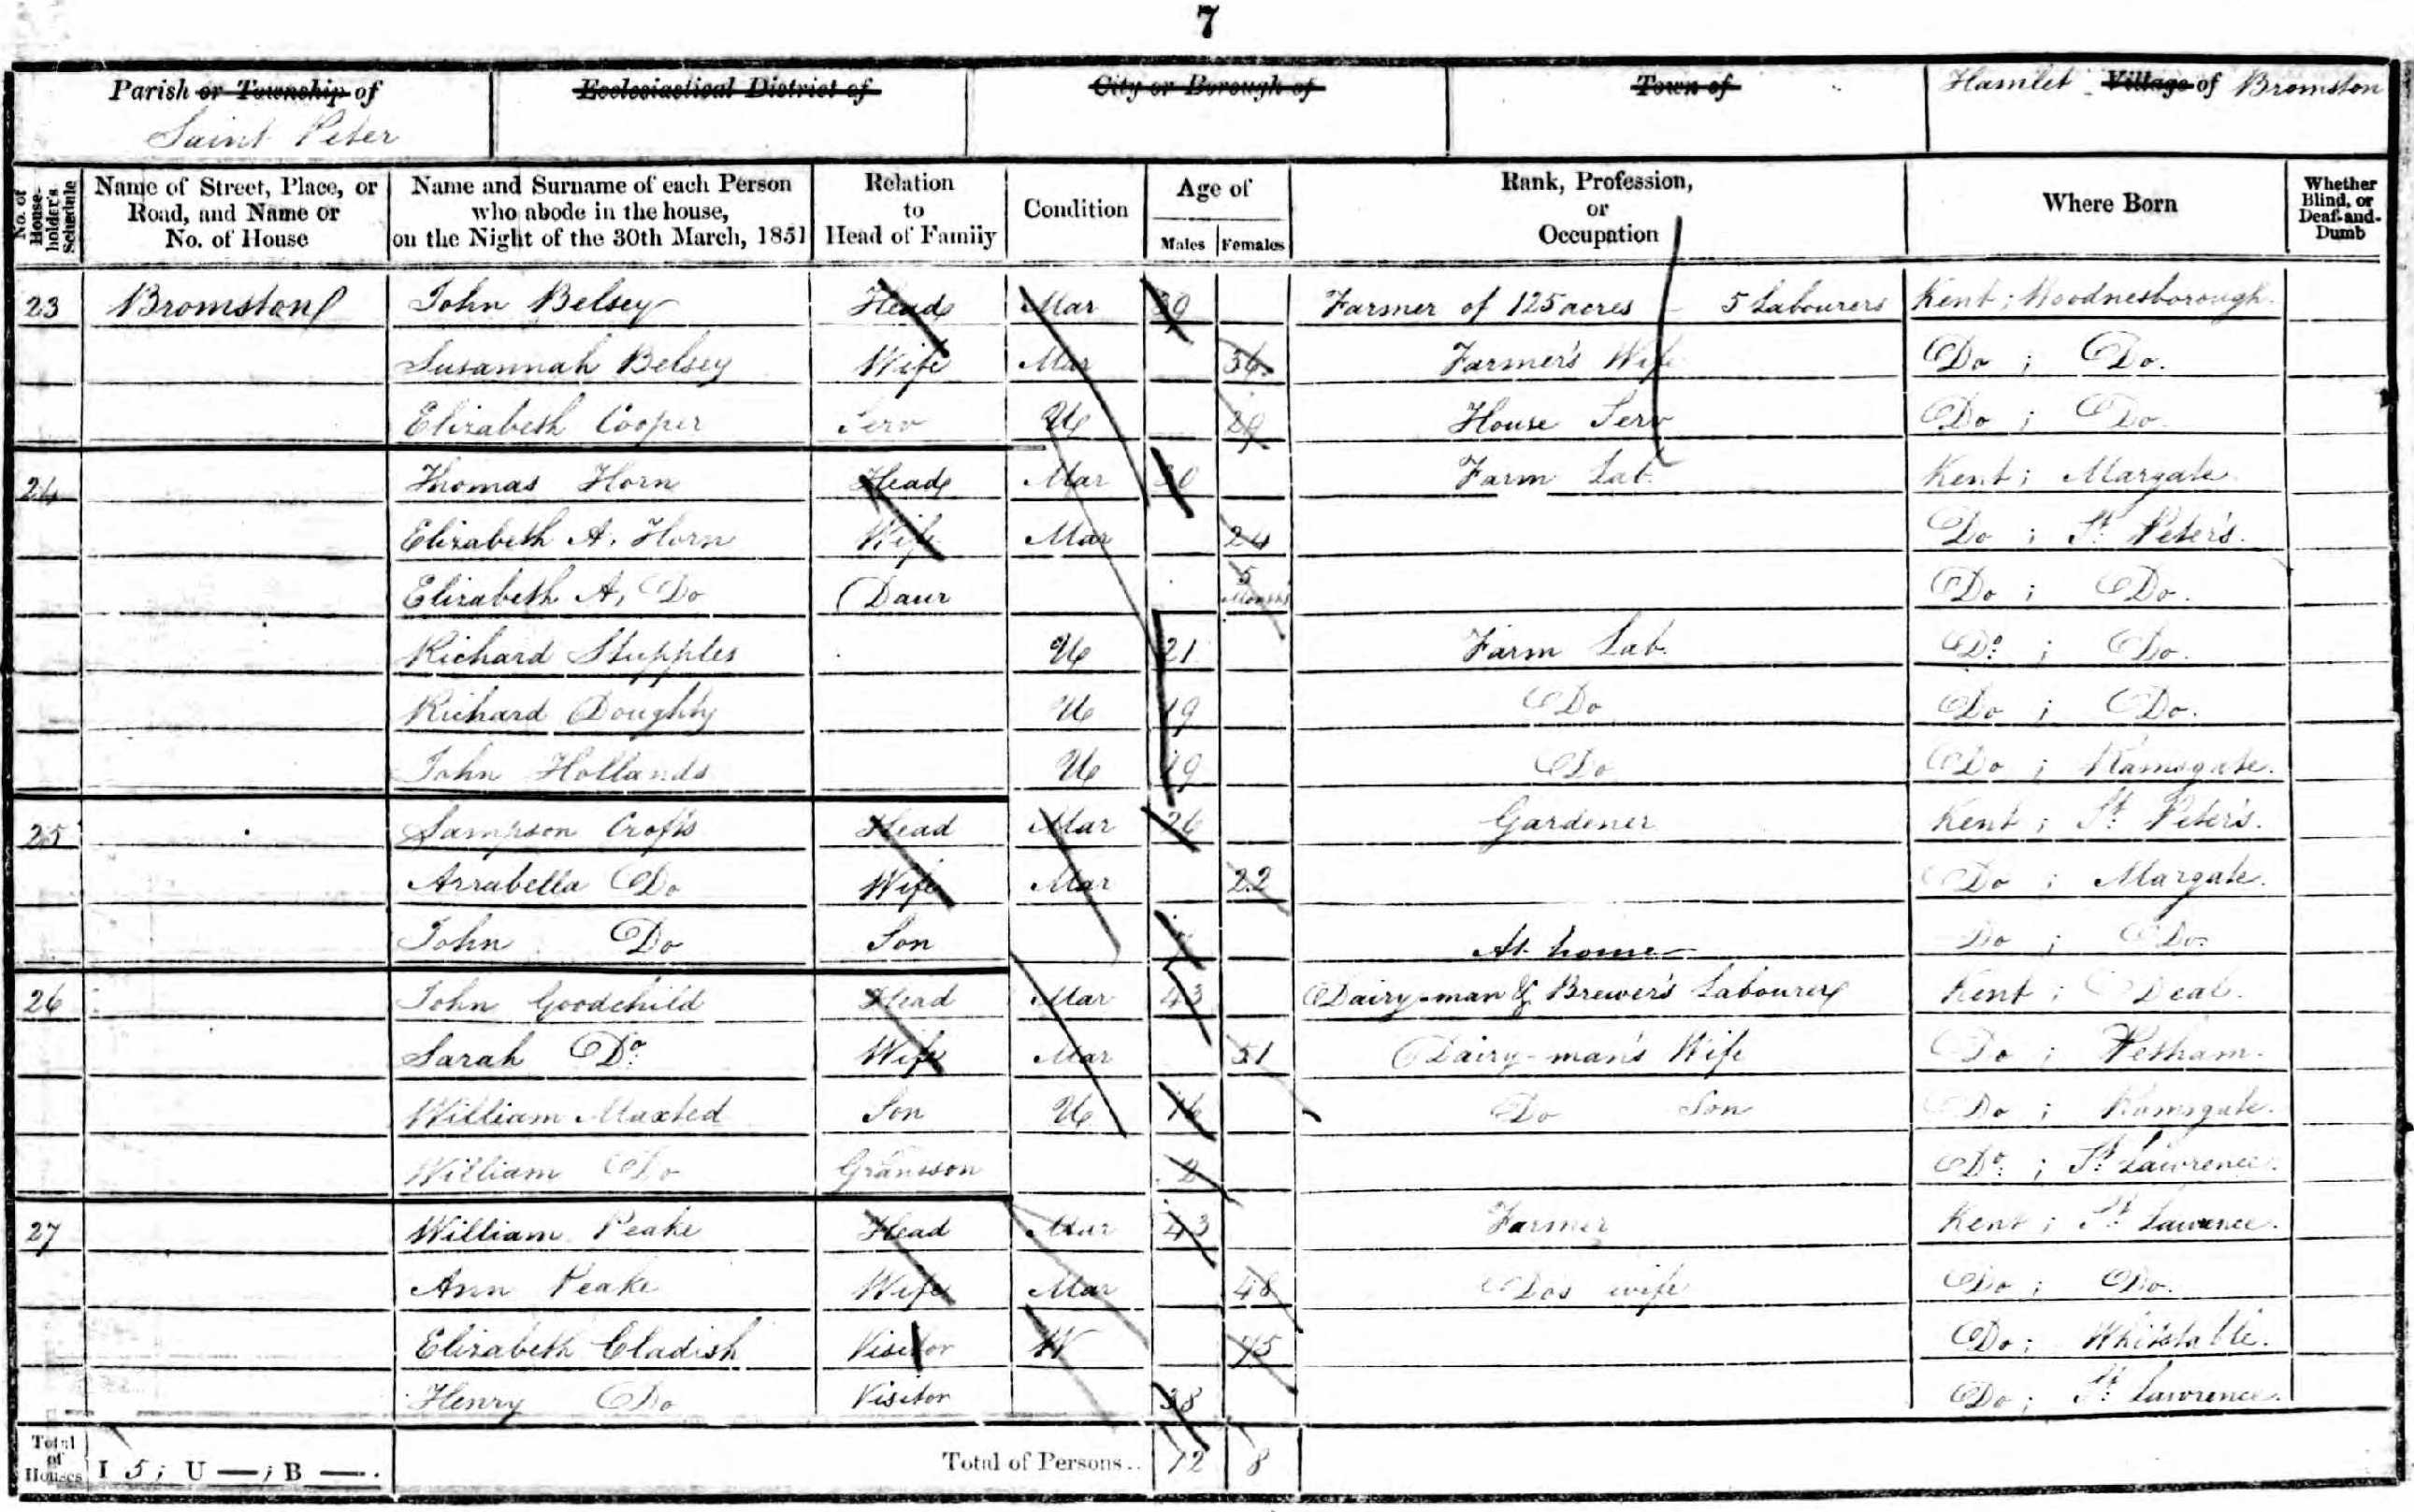 7
Parish or Township of Saint Peter | Ecclesiastical District of | City or Borough of | Town of | Hamlet Village of Bromston
No. of House-holder's Schedule | Name of Street, Place, or Road, and Name or No. of House | Name and Surname of each Person who abode in the house, on the Night of the 30th March, 1851 | Relation to Head of Family | Condition | Age of Males | Females | Rank, Profession, or Occupation | Where Born | Whether Blind, or Deaf-and-Dumb
23 Bromstone John Belsey Head Mar 39 Farmer of 125 acres - 5 Labourers Kent; Woodnesborough.
Susannah Belsey Wife Mar Farmer's Wife Do; Do.
Elizabeth Cooper Serv U 29 House Serv Do; Do
24 Thomas Horn Head Mar 30 Farm Lab. Kent; Margate
Elizabeth A. Horn Wife Mar 24 Do; St. Peter's.
Elizabeth A. Do Daur 5 Months Do; Do.
Richard Stupples U 21 Farm Lab. Do; Do.
Richard Doughty U 19 Do Do; Do.
John Hollands U 19 Do Do; Ramsgate.
25 Sampson Crofts Head Mar 26 Gardener Kent; St. Peter's.
Arrabella Do Wife Mar 22 Do; Margate.
John Do Son At home Do; Do.
26 John Goodchild Head Mar 43 Dairy-man & Brewer's Labourer Kent; Deal.
Sarah Do. Wife Mar 51 Dairy-man's Wife Do; Petham.
William Maxted Son U 16 Do Son Do; Ramsgate.
William Do Granson 2 Do; St. Lawrence.
27 William Peake Head Mar 43 Farmer Kent; St. Lawrence.
Ann Peake Wife Mar 48 Do's wife Do; Do.
Elizabeth Cladish Visitor W 75 Do; Whitstable.
Henry Do Visitor 38 Do; St. Lawrence.
Total of Houses I 5; U —; B —. Total of Persons.. 12 8